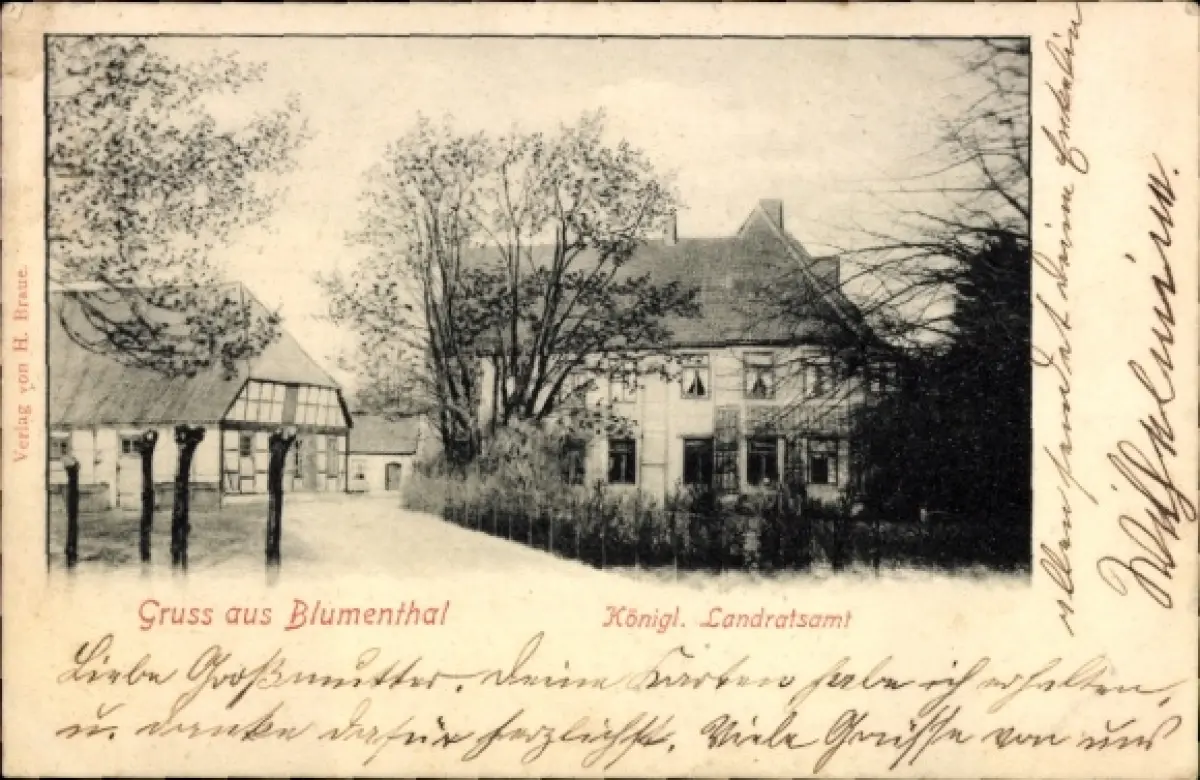 Verlag von H. Braue.
Gruss aus Blumenthal
Königl. Landratsamt
Liebe Großmutter. Deine Karten habe ich erhalten,
u. danke dafür herzlichst. Viele Grüsse von uns
allen sendet Deine Enkelin
Wilhelmine.